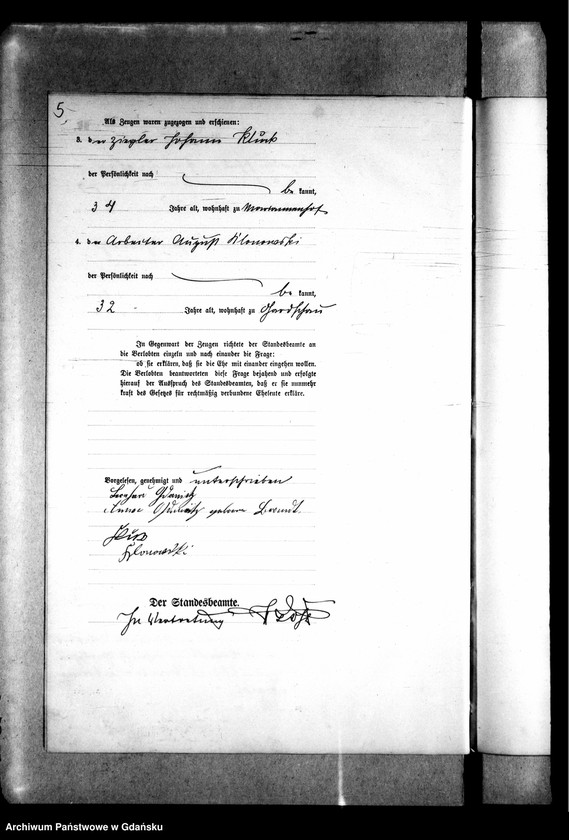 5
Als Zeugen waren zugezogen und erschienen:
3. der Ziegler Johann Kluck
der Persönlichkeit nach
be kannt,
34 Jahre alt, wohnhaft zu Mariannenhof
4. der Arbeiter August Klonowski
der Persönlichkeit nach
be kannt,
32 Jahre alt, wohnhaft zu Gardschau
In Gegenwart der Zeugen richtete der Standesbeamte an
die Verlobten einzeln und nach einander die Frage:
ob sie erklären, daß sie die Ehe mit einander eingehen wollen.
Die Verlobten beantworteten diese Frage bejahend und erfolgte
hierauf der Ausspruch des Standesbeamten, daß er sie nunmehr
kraft des Gesetzes für rechtmäßig verbundene Eheleute erkläre.
Vorgelesen, genehmigt und unterschrieben
Anna geborene
Klonowski
Der Standesbeamte.
In Vertretung
Archiwum Państwowe w Gdańsku